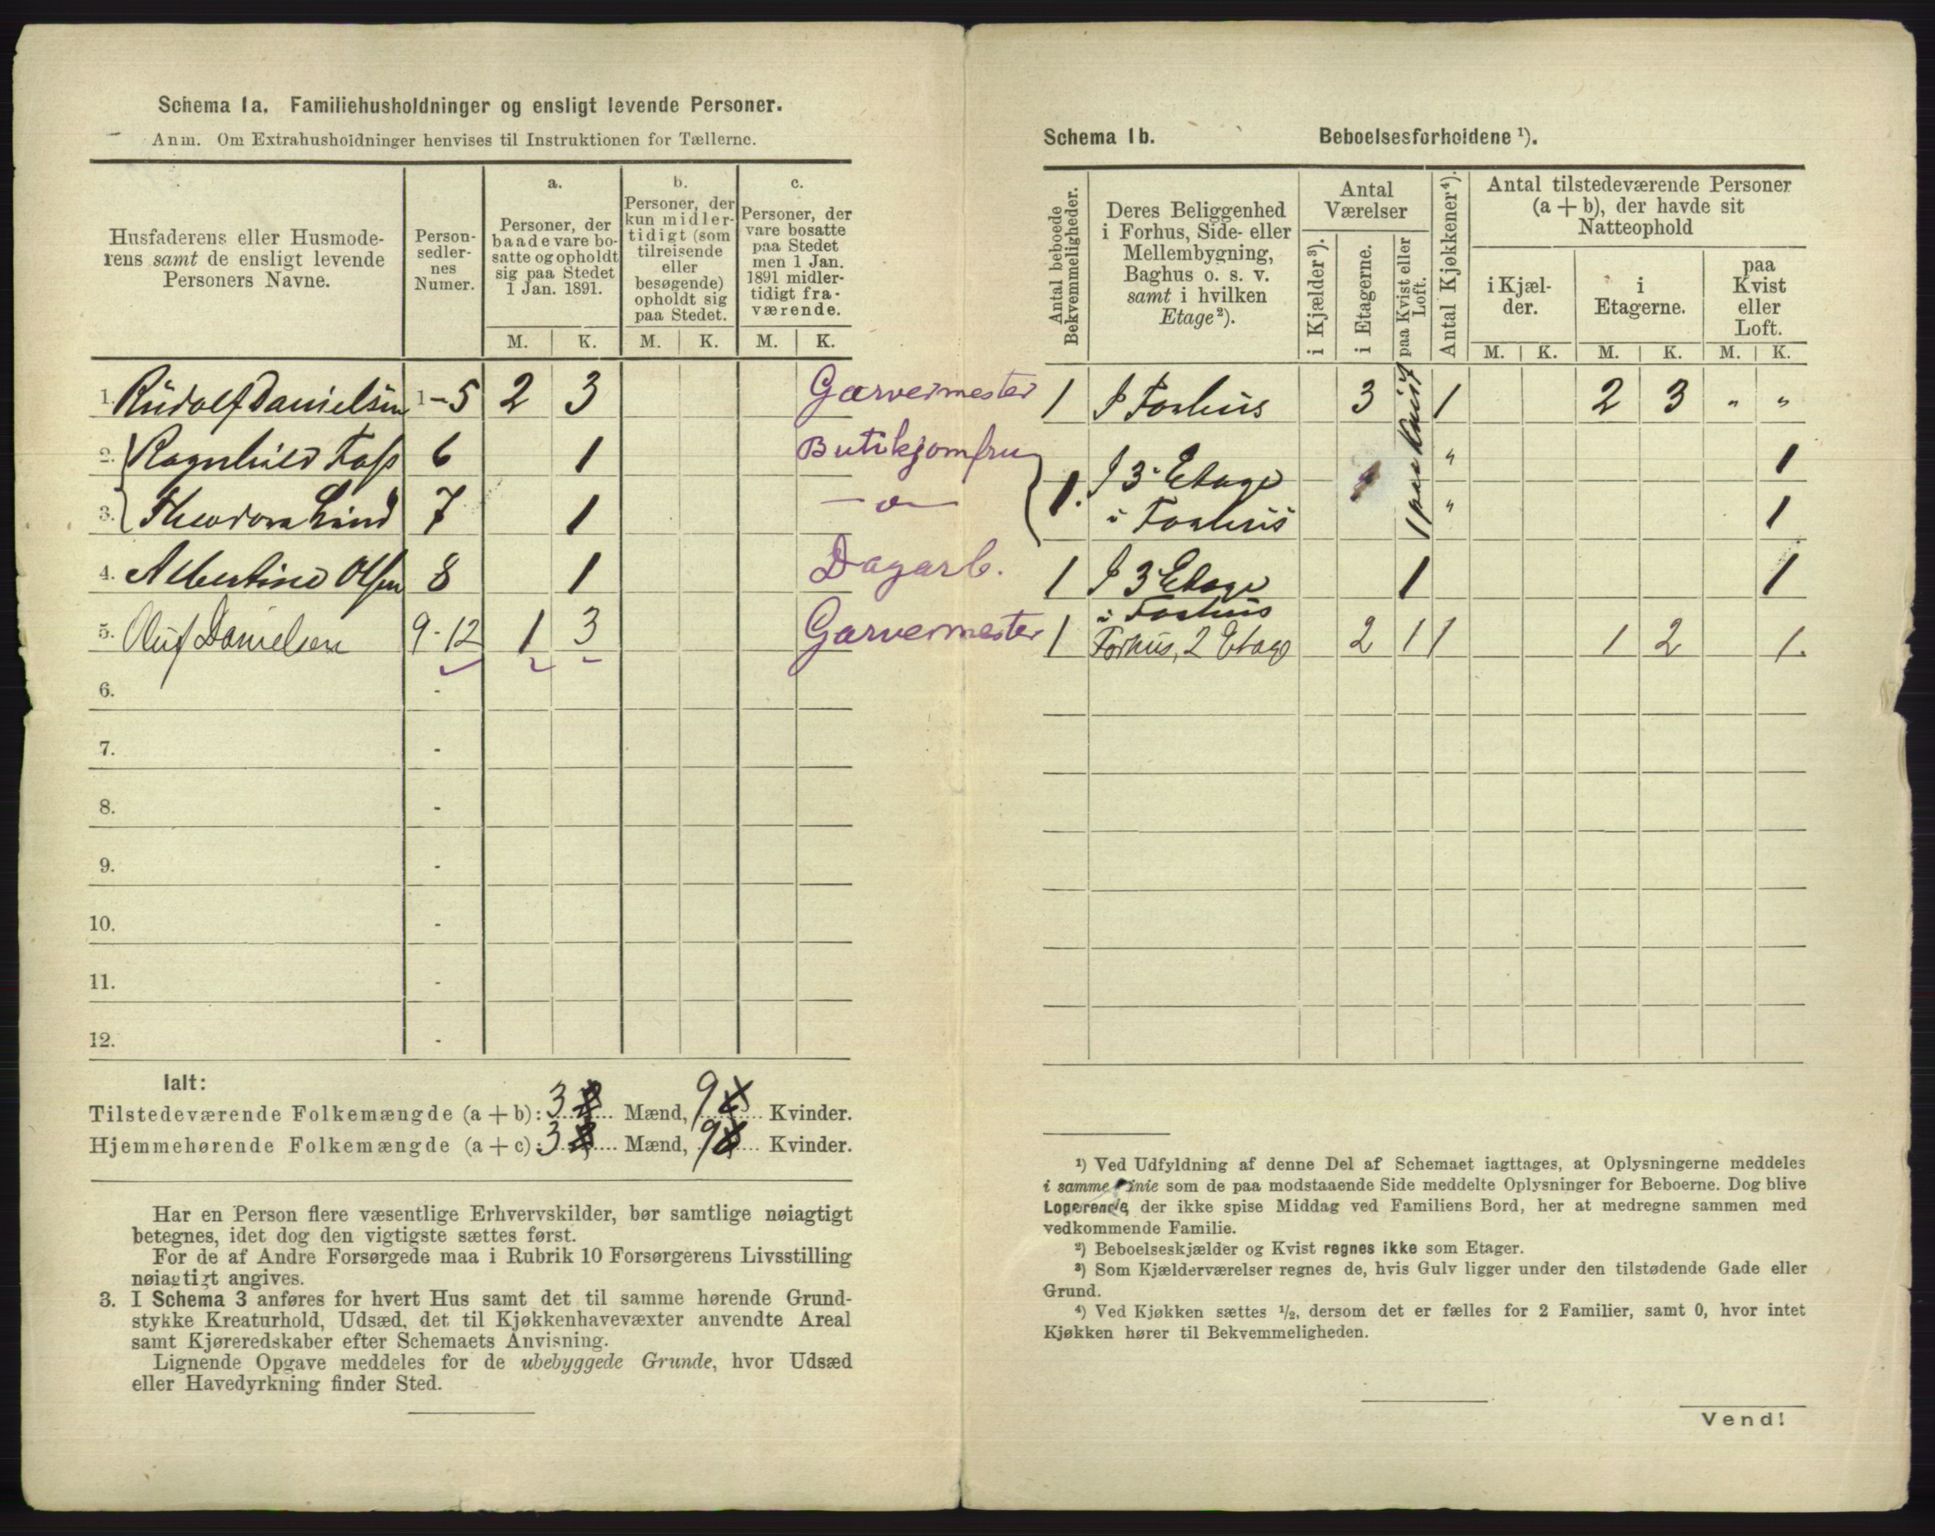 Schema 1a. Familiehusholdninger og ensligt levende Personer.
Anm. Om Extrahusholdninger henvises til Instruktionen for Tællerne.
Husfaderens eller Husmode-
rens samt de ensligt levende
Personers Navne.
Person-
sedler-
nes
Numer.
a.
Personer, der
baade vare bo-
satte og opholdt
sig paa Stedet
1 Jan. 1891.
b.
Personer, der
kun midler-
tidigt (som
tilreisende
eller
besøgende)
opholdt sig
paa Stedet.
c.
Personer, der
vare bosatte
paa Stedet
men 1 Jan.
1891 midler-
tidigt fra-
værende.
M. K. M. K. M. K.
1. Rudolf Danielsen 1-5 2 3 Garvermester
2. Ragnhild Foss 6 1 Butikjomfru
3. Theodora Lund 7 1 — " —
4. Albertine Olsen 8 1 Dagarb.
5. Oluf Danielsen 9-12 1 3 Garvermester
6. -
7. -
8. -
9. -
10. -
11. -
12. -
Ialt:
Tilstedeværende Folkemængde (a + b): 3 Mænd, 9 Kvinder.
Hjemmehørende Folkemængde (a + c): 3 Mænd, 9 Kvinder.
Har en Person flere væsentlige Erhvervskilder, bør samtlige nøiagtigt
betegnes, idet dog den vigtigste sættes først.
For de af Andre Forsørgede maa i Rubrik 10 Forsørgerens Livsstilling
nøiagtigt angives.
3. I Schema 3 anføres for hvert Hus samt det til samme hørende Grund-
stykke Kreaturhold, Udsæd, det til Kjøkkenhavevæxter anvendte Areal
samt Kjøreredskaber efter Schemaets Anvisning.
Lignende Opgave meddeles for de ubebyggede Grunde, hvor Udsæd
eller Havedyrkning finder Sted.
Schema 1b. Beboelsesforholdene ¹).
Antal beboede
Bekvemmeligheder.
Deres Beliggenhed
i Forhus, Side- eller
Mellembygning,
Baghus o. s. v.
samt i hvilken
Etage²).
Antal
Værelser
i Kjælder³).
i Etagerne.
paa Kvist eller
Loft.
Antal Kjøkkener⁴).
Antal tilstedeværende Personer
(a + b), der havde sit
Natteophold
i Kjæl-
der.
i
Etagerne.
paa
Kvist
eller
Loft.
M. K. M. K. M. K.
1 I Forhus 3 1 2 3 " "
1. I 3 Etage 1 paa Kvist " 1
i Forhus " 1
1 I 3 Etage 1 1
i Forhus
1 Forhus, 2 Etage 2 1 1 1 2 1.
¹) Ved Udfyldning af denne Del af Schemaet iagttages, at Oplysningerne meddeles
i samme Linie som de paa modstaaende Side meddelte Oplysninger for Beboerne. Dog blive
Logerende, der ikke spise Middag ved Familiens Bord, her at medregne sammen med
vedkommende Familie.
²) Beboelseskjælder og Kvist regnes ikke som Etager.
³) Som Kjælderværelser regnes de, hvis Gulv ligger under den tilstødende Gade eller
Grund.
⁴) Ved Kjøkken sættes ½, dersom det er fælles for 2 Familier, samt 0, hvor intet
Kjøkken hører til Bekvemmeligheden.
Vend!